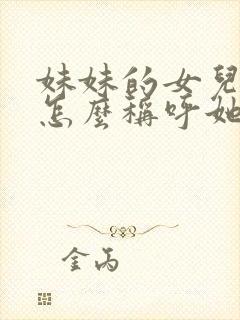 妹妹的女兒
怎麼稱呼她
金丙